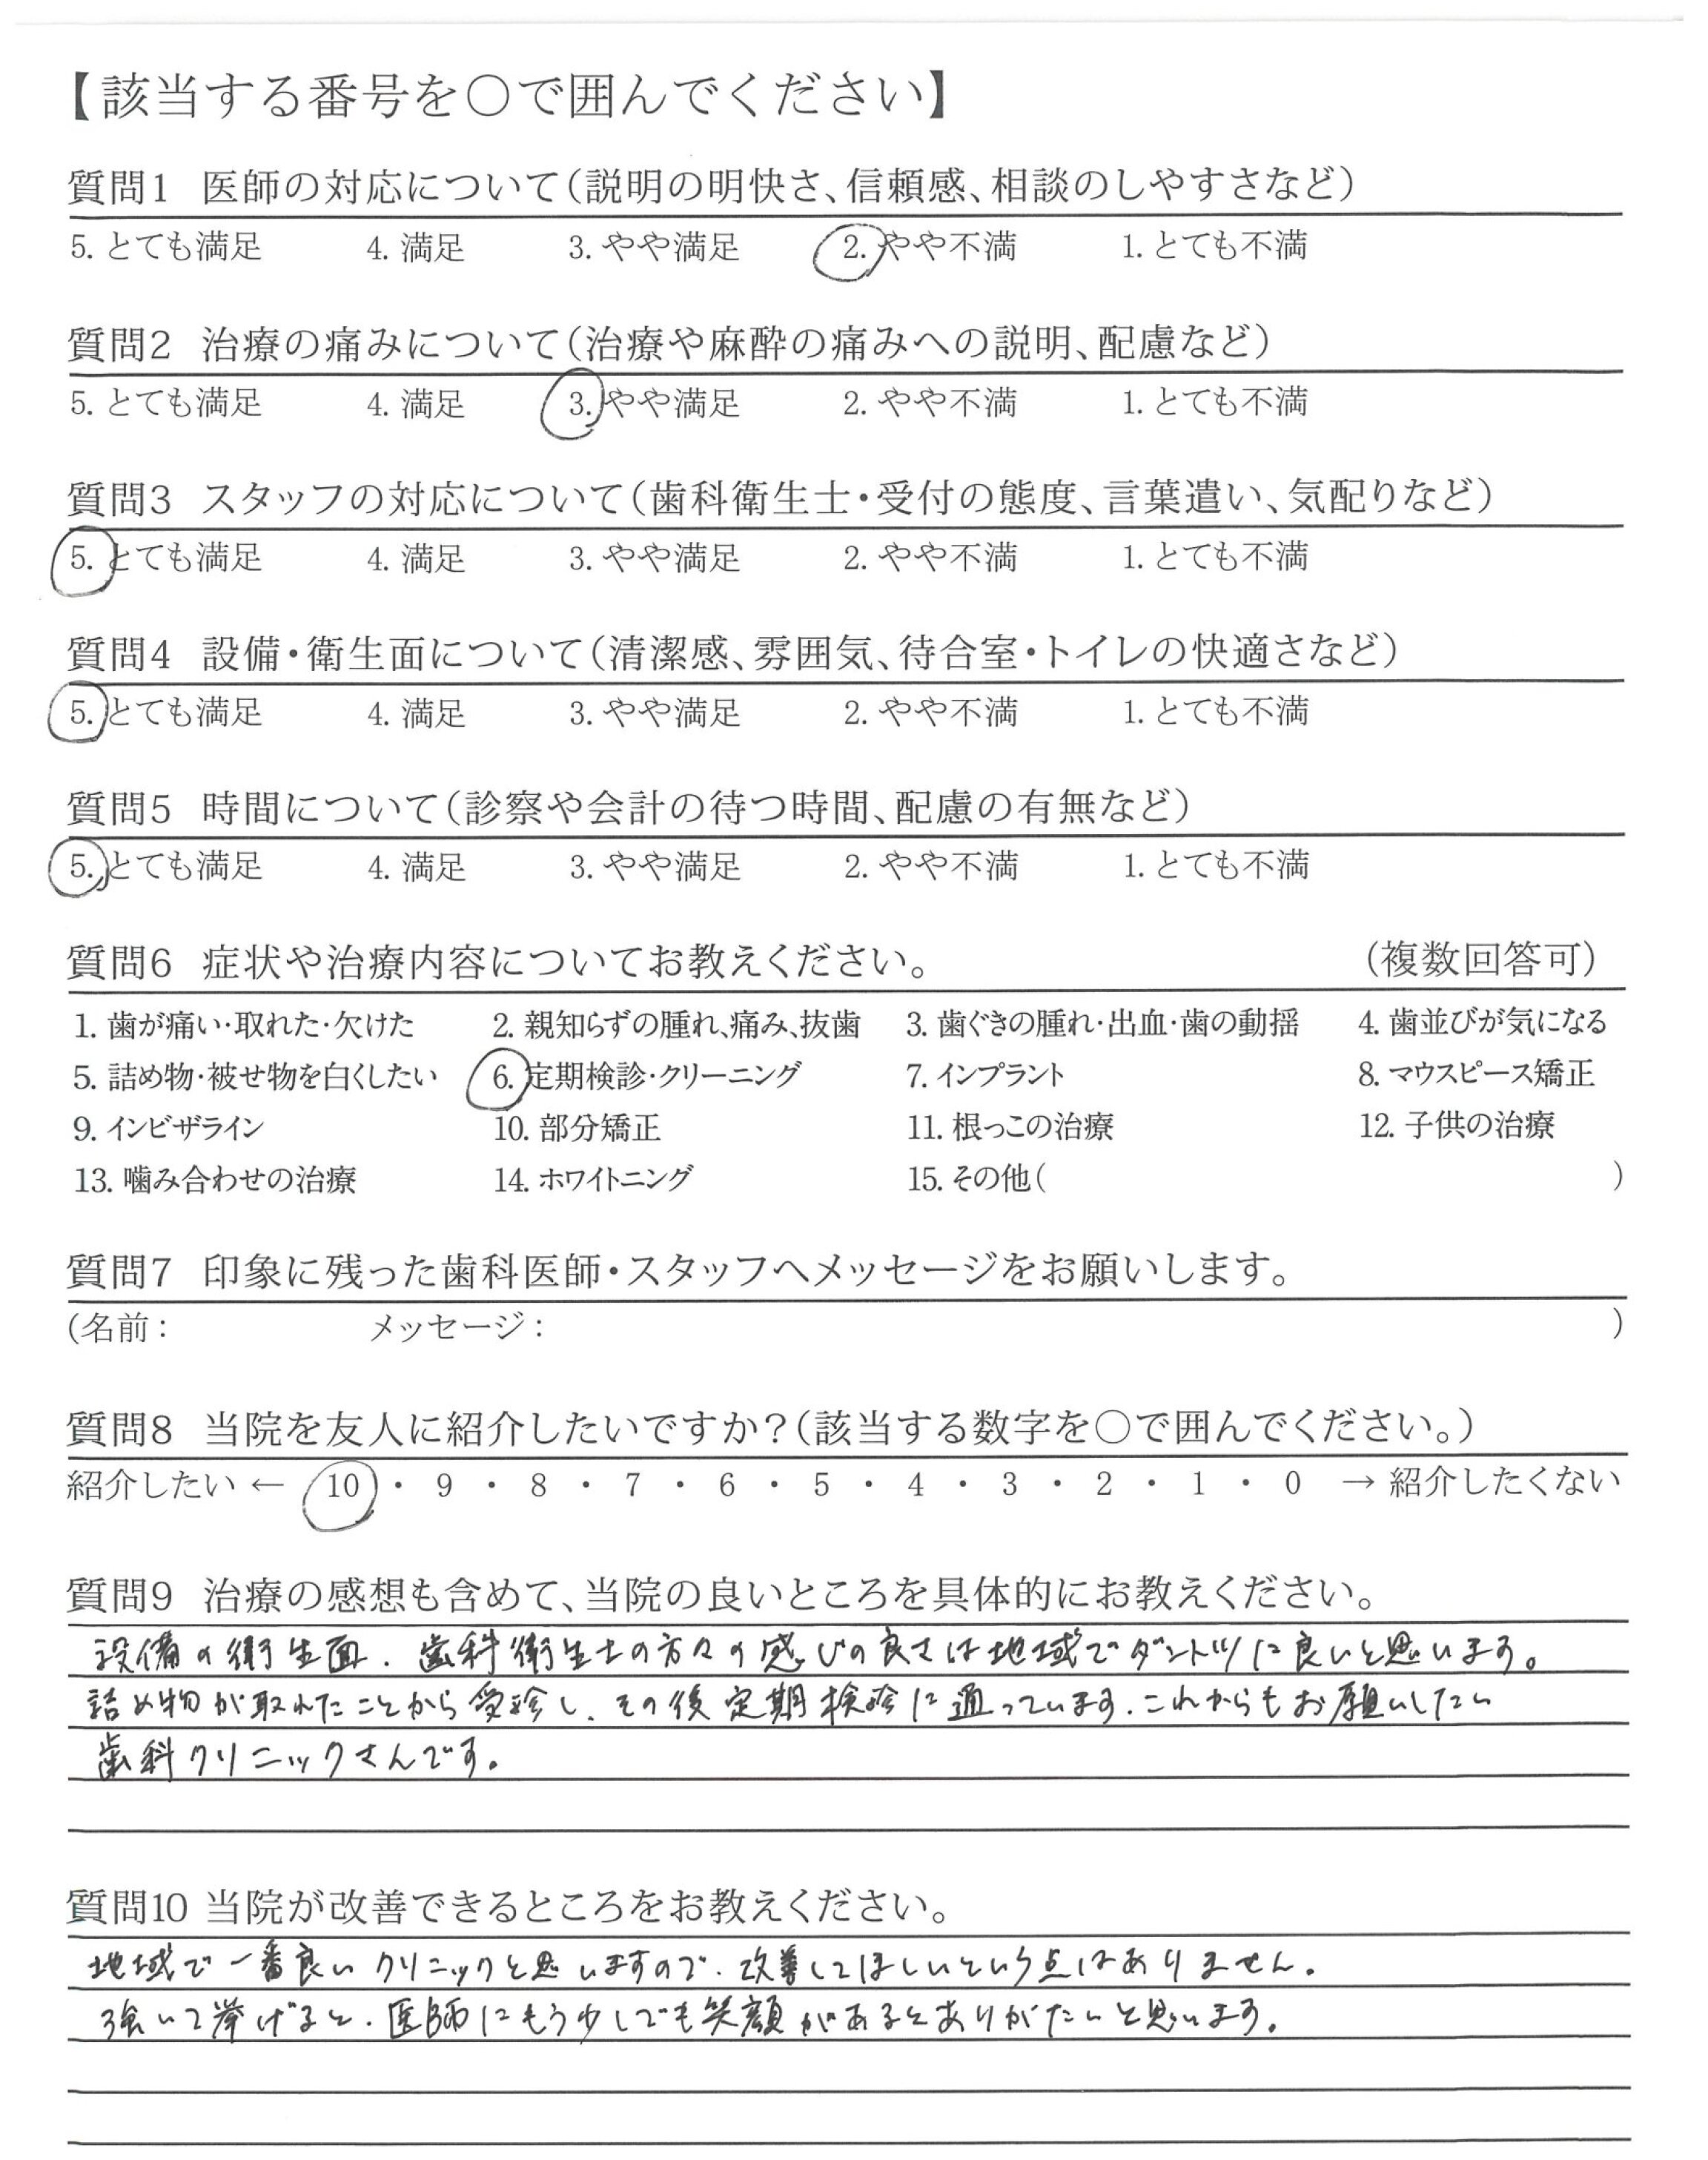 【該当する番号を〇で囲んでください】
質問1 医師の対応について(説明の明快さ、信頼感、相談のしやすさなど)
5. とても満足 4. 満足 3. やや満足 2. やや不満 1. とても不満
質問2 治療の痛みについて(治療や麻酔の痛みへの説明、配慮など)
5. とても満足 4. 満足 3. やや満足 2. やや不満 1. とても不満
質問3 スタッフの対応について(歯科衛生士・受付の態度、言葉遣い、気配りなど)
5. とても満足 4. 満足 3. やや満足 2. やや不満 1. とても不満
質問4 設備・衛生面について(清潔感、雰囲気、待合室・トイレの快適さなど)
5. とても満足 4. 満足 3. やや満足 2. やや不満 1. とても不満
質問5 時間について(診察や会計の待つ時間、配慮の有無など)
5. とても満足 4. 満足 3. やや満足 2. やや不満 1. とても不満
質問6 症状や治療内容についてお教えください。 (複数回答可)
1. 歯が痛い・取れた・欠けた 2. 親知らずの腫れ、痛み、抜歯 3. 歯ぐきの腫れ・出血・歯の動揺 4. 歯並びが気になる
5. 詰め物・被せ物を白くしたい 6. 定期検診・クリーニング 7. インプラント 8. マウスピース矯正
9. インビザライン 10. 部分矯正 11. 根っこの治療 12. 子供の治療
13. 噛み合わせの治療 14. ホワイトニング 15. その他( )
質問7 印象に残った歯科医師・スタッフへメッセージをお願いします。
(名前: メッセージ: )
質問8 当院を友人に紹介したいですか?(該当する数字を〇で囲んでください。)
紹介したい ← 10 ・ 9 ・ 8 ・ 7 ・ 6 ・ 5 ・ 4 ・ 3 ・ 2 ・ 1 ・ 0 → 紹介したくない
質問9 治療の感想も含めて、当院の良いところを具体的にお教えください。
設備の衛生面、歯科衛生士の方々の感じの良さは地域でダントツに良いと思います。
詰め物が取れたことから受診し、その後定期検診に通っています。これからもお願いしたい
歯科クリニックさんです。
質問10 当院が改善できるところをお教えください。
地域で一番良いクリニックと思いますので、改善してほしいという点はありません。
強いて挙げると、医師にもう少しでも笑顔があるとありがたいと思います。